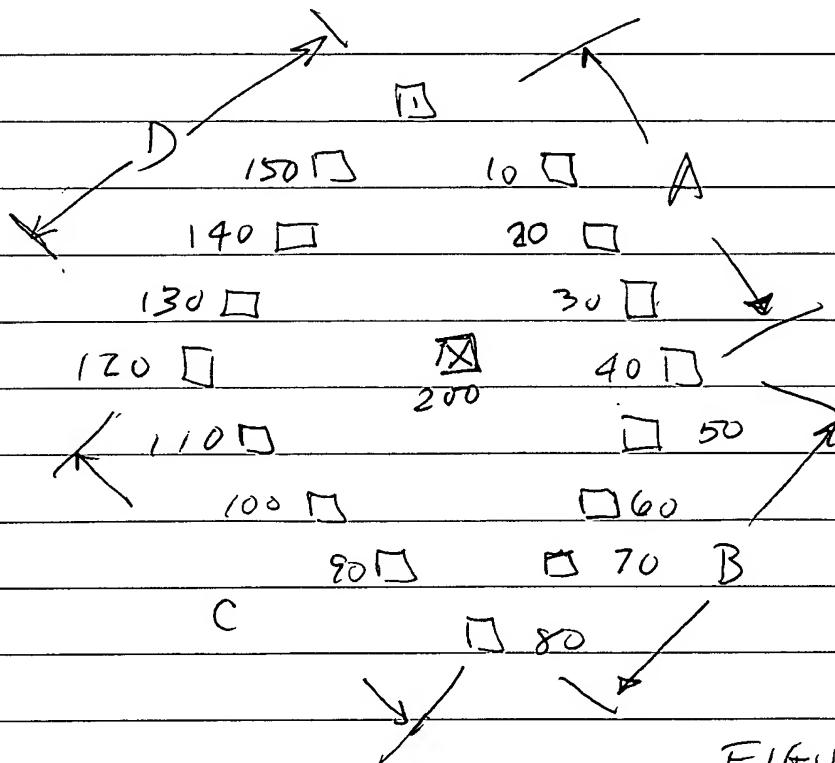 1
D
150 10 A
140 20
130 30
120 200 40
110 50
100 60
90 70 B
C
80